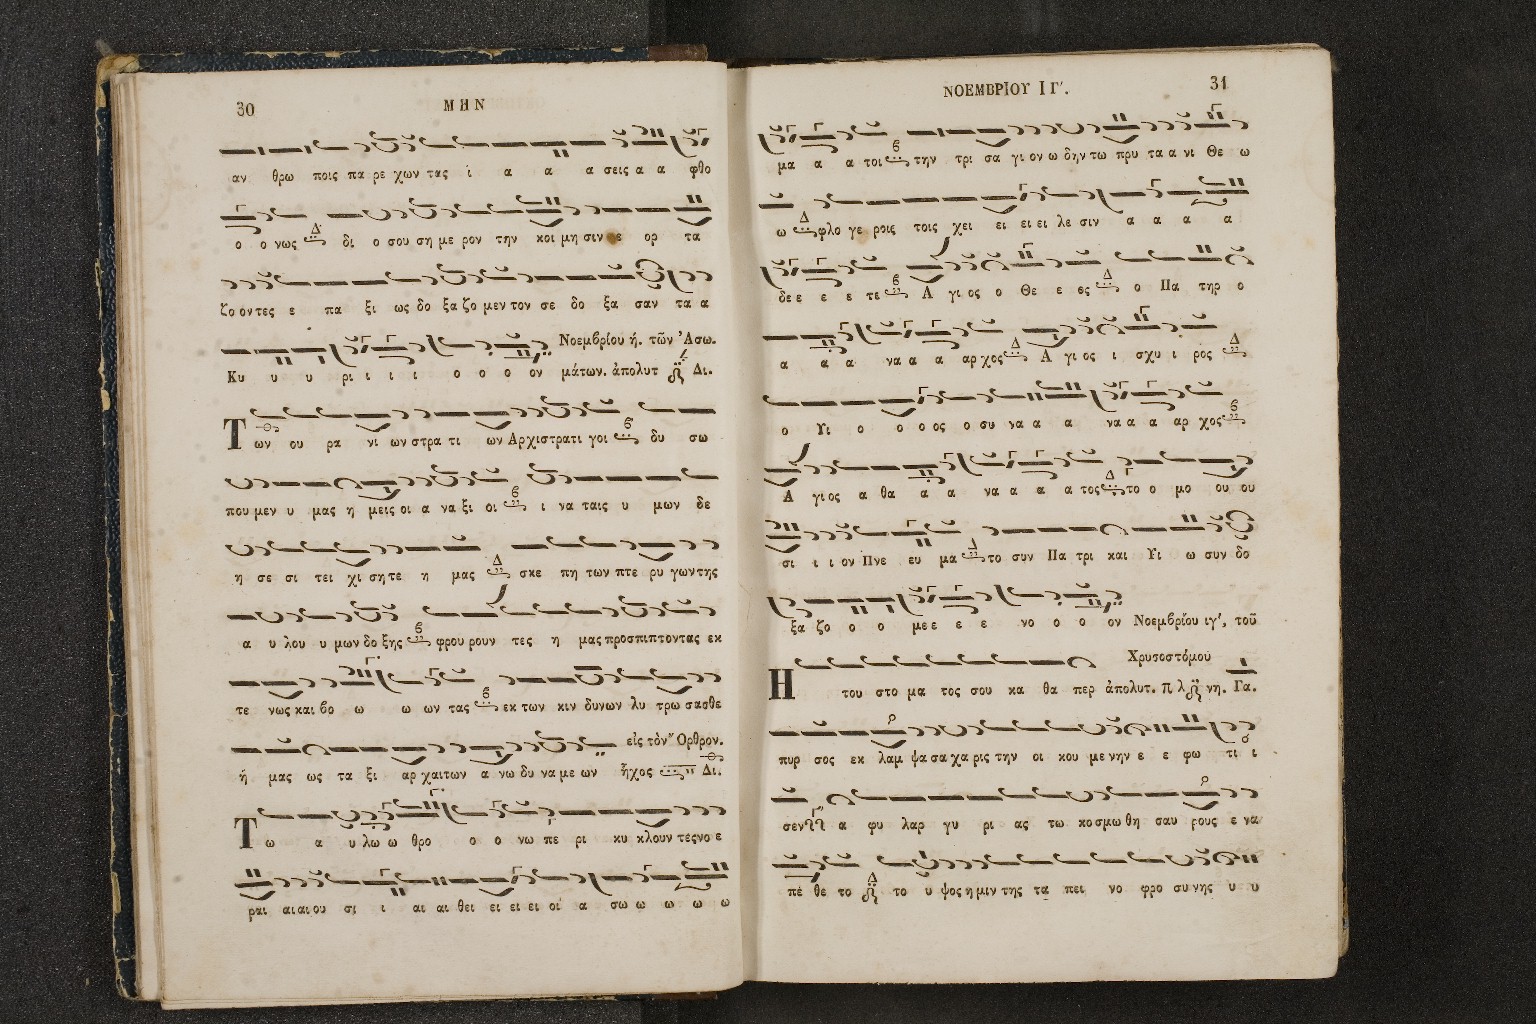 30 ΜΗΝ
αν θρω ποις πα ρε χων τας ι α α α σεις α α φθο
ο ο νως δι ο σου ση με ρον την κοι μη σιν ε ορ τα
ζο ον τες ε πα ξι ως δο ξα ζο μεν τον σε δο ξα σαν τα α
Νοεμβρίου ή. τῶν Ἀσω.
Κυ υ υ ρι ι ι ι ο ο ο ον μάτων. ἀπολυτ Δι.
Των ου ρα νι ων στρα τι ων Αρχιστρατι γοι δυ σω
που μεν υ μας η μεις οι α να ξι οι ι να ταις υ μων δε
η σε σι τει χι ση τε η μας σκε πη των πτε ρυ γων της
α υ λου υ μων δο ξης φρου ρουν τες η μας προσπιπτοντας εκ
τε νως και βο ω ω ων τας εκ των κιν δυνων λυ τρω σασθε
εἰς τὸν Ὄρθρον.
ή μας ως τα ξι αρ χαι των α νω δυ να με ων ἦχος Δι.
Τω α υ λω ω θρο ο ο νω πε ρι κυ κλουν τες νο ε
ραι αι αι ου σι ι αι αι θει ει ει ει οι α σω ω ω ω ω
ΝΟΕΜΒΡΙΟΥ ΙΓ΄. 31
μα α α τοι την τρι σα γι ον ω δην τω πρυ τα α νι Θε ω
ω φλο γε ροις τοις χει ει ει ει λε σιν α α α α
δε ε ε ε τε Α γι ος ο Θε ε ες ο Πα τηρ ο
α α α να α α αρ χος Α γι ος ι σχυ ι ρος
ο Υι ο ο ο ος ο συ να α α να α α αρ χος
Α γι ος α θα α α να α α α τος το ο μο ου ου
σι ι ι ον Πνε ευ μα το συν Πα τρι και Υι ω συν δο
ξα ζο ο ο με ε ε ε νο ο ο ον Νοεμβρίου ιγ΄, τοῦ
Χρυσοστόμου
Η του στο μα τος σου κα θα περ ἀπολυτ. π λ νη. Γα.
πυρ σος εκ λαμ ψα σα χα ρις την οι κου με νην ε ε φω τι ι
σεν α φυ λαρ γυ ρι ας τω κο σμω θη σαυ ρους ε να
πέ θε το το υ ψος η μιν της τα πει νο φρο συ νης υ υ